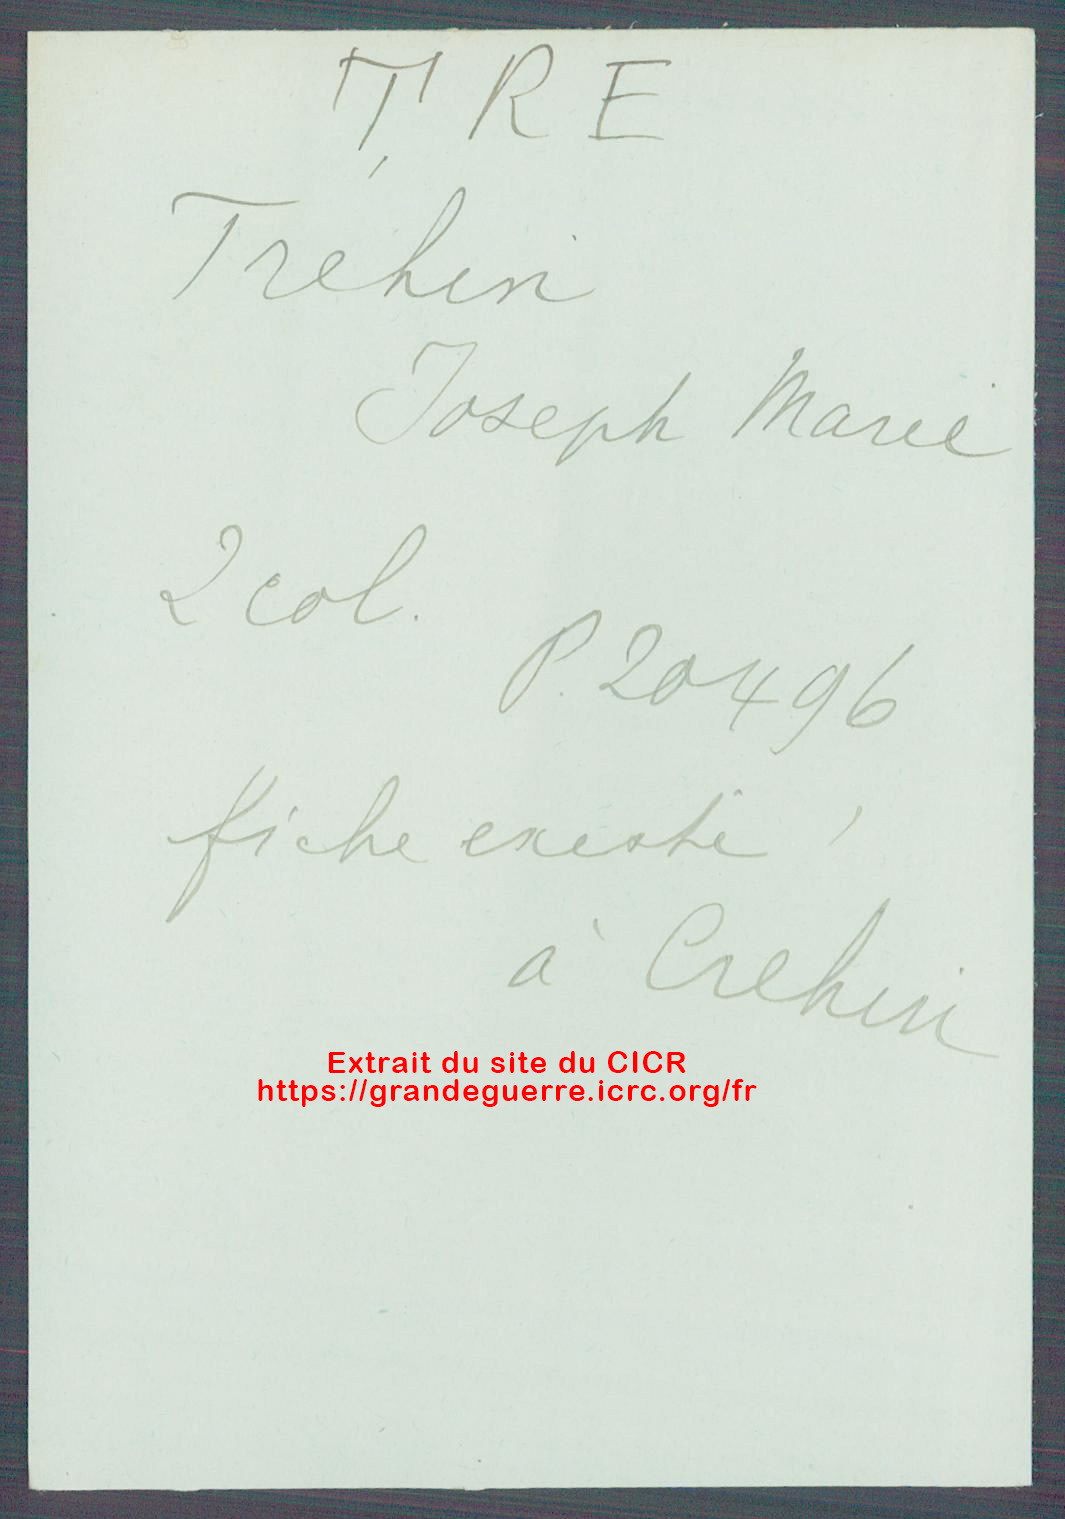 TRE
Trehin
Joseph Marie
2 col.
P. 20496
fiche existe !
à Crehin
Extrait du site du CICR
https://grandeguerre.icrc.org/fr